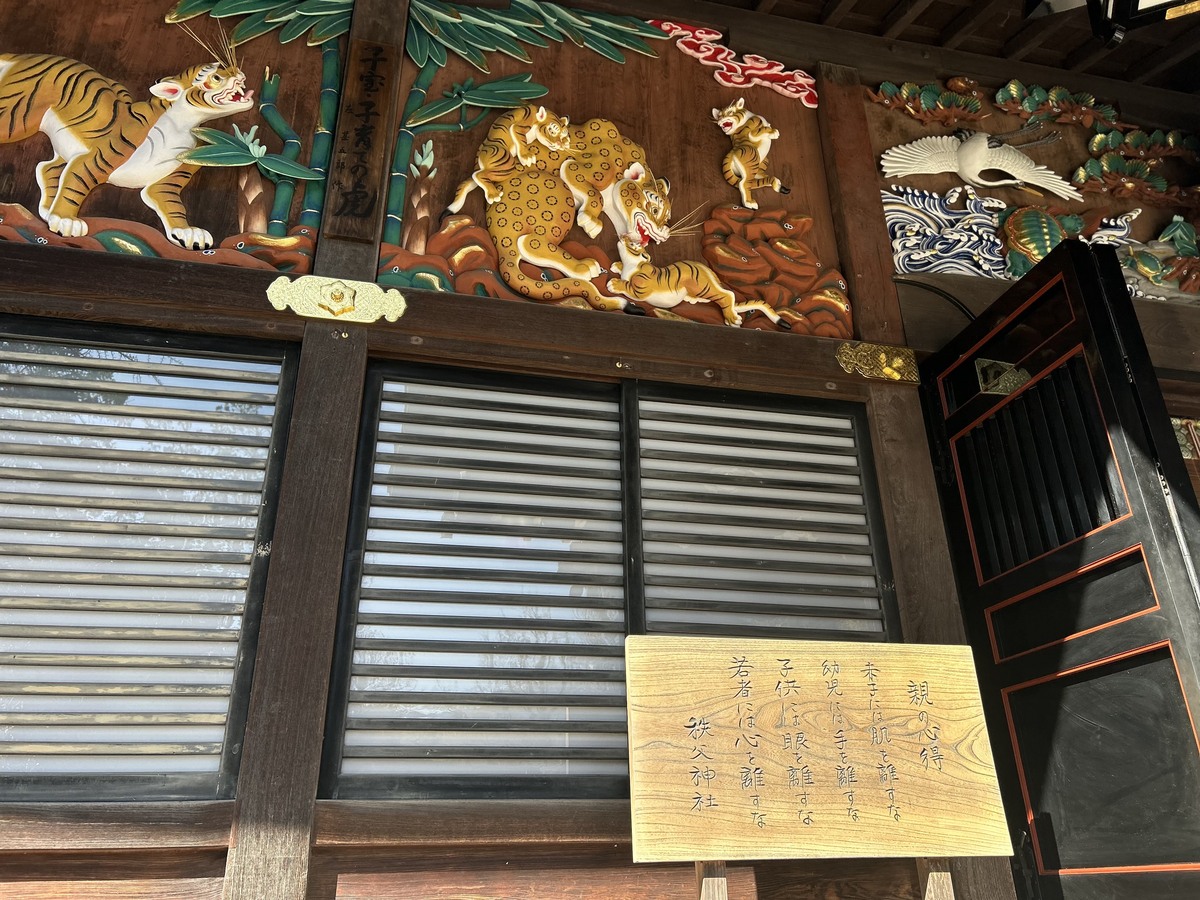 子宝 子育ての虎
親の心得
赤子には肌を離すな
幼児には手を離すな
子供には眼を離すな
若者には心を離すな
秩父神社